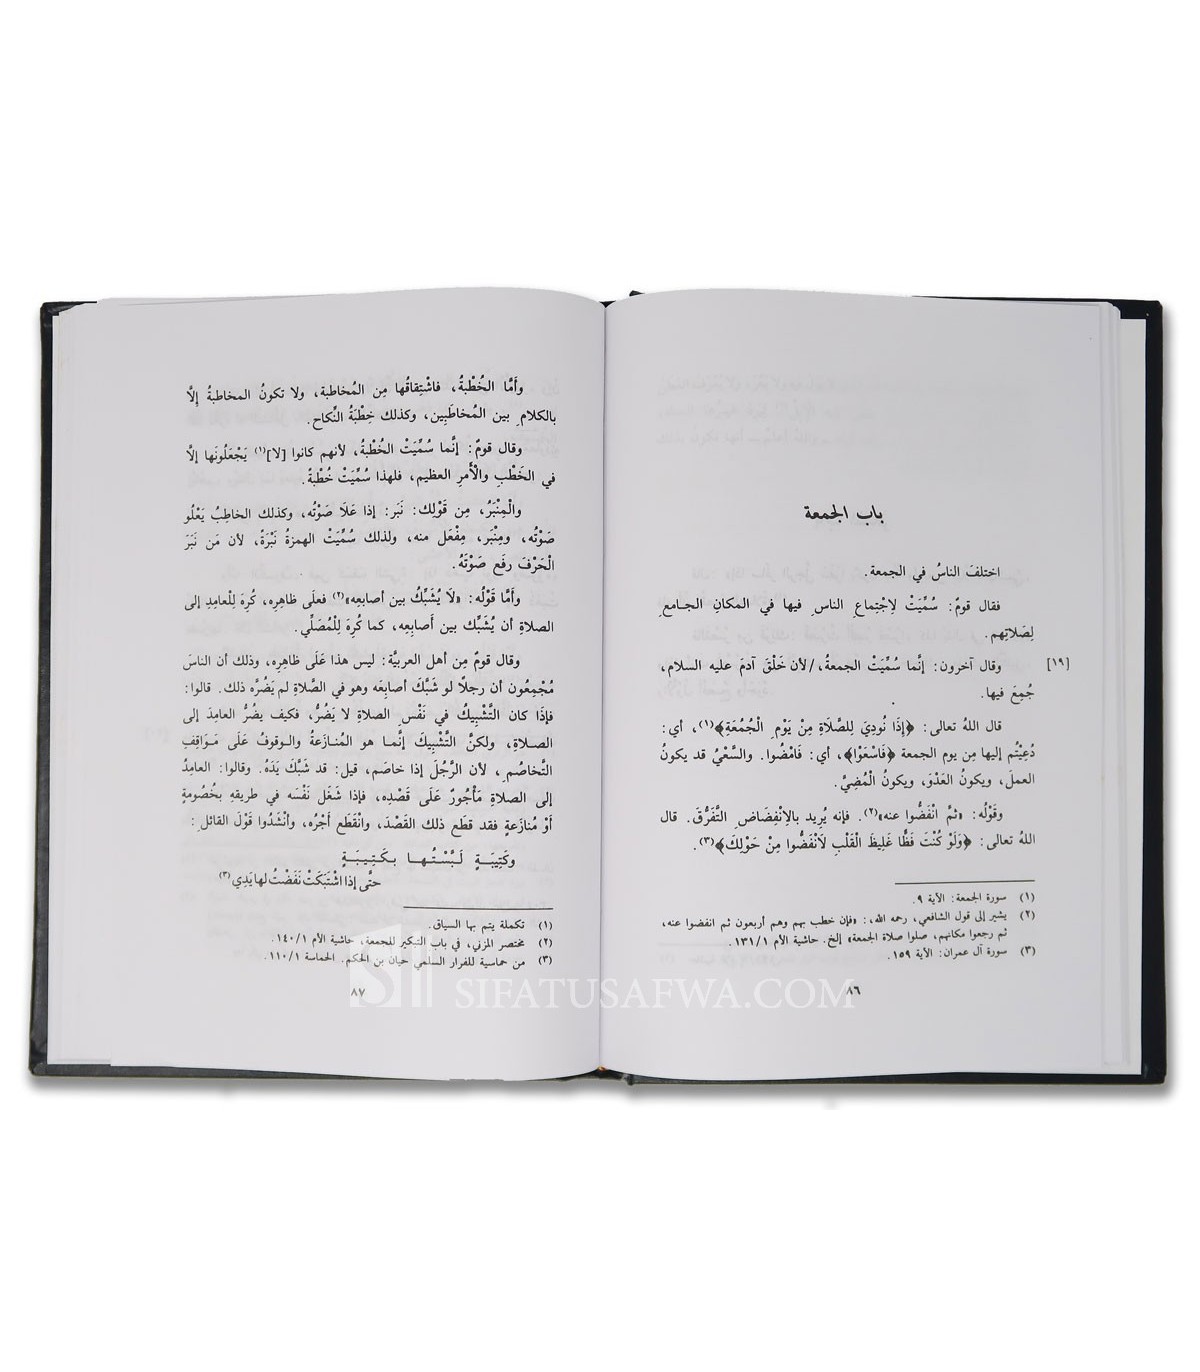 باب الجمعة
اختلفَ الناسُ في الجمعة.
فقال قومٌ: سُمِّيَتْ لِاجْتِماعِ الناسِ فيها في المكانِ الجامعِ
لِصَلاتِهم.
[١٩] وقال آخرون: إنَّما سُمِّيَتْ الجمعةُ،/لأن خَلْقَ آدمَ عليه السلام،
جُمِعَ فيها.
قال اللهُ تعالى: ﴿إِذَا نُودِيَ لِلصَّلَاةِ مِنْ يَوْمِ الْجُمُعَةِ﴾(١)، أي:
دُعِيْتُم إليها مِن يوم الجمعة ﴿فَاسْعَوْا﴾، أي: فَامْضُوا. والسَّعْيُ قد يكونُ
العملَ، ويكونُ العَدْوَ، ويكونُ الْمُضِيَّ.
وقَوْلُه: «ثمَّ انْفَضُّوا عنه»(٢). فإنه يُرِيد بالِانْفِضَاضِ التَّفَرُّقَ. قال
اللهُ تعالى: ﴿وَلَوْ كُنْتَ فَظًّا غَلِيظَ الْقَلْبِ لَانْفَضُّوا مِنْ حَوْلِكَ﴾(٣).
(١) سورة الجمعة: الآية ٩.
(٢) يشير إلى قول الشافعي، رحمه الله،: «فإن خطب بهم وهم أربعون ثم انفضوا عنه،
ثم رجعوا مكانهم، صلوا صلاة الجمعة» إلخ. حاشية الأم ١٣١/١.
(٣) سورة آل عمران: الآية ١٥٩.
٨٦
وأمَّا الخُطْبةُ، فاشْتِقاقُها مِن المُخاطبة، ولا تكونُ المخاطبةُ إلَّا
بالكلامِ بين المُخاطَبِين، وكذلك خِطْبَةُ النِّكاح.
وقال قومٌ: إنَّما سُمِّيَتْ الخُطْبةُ، لأنهم كانوا [لا](١) يَجْعَلُونَها إلَّا
في الخَطْبِ والْأَمرِ العظيم، فلهذا سُمِّيَتْ خُطْبةُ.
والْمِنْبَرُ، مِن قَوْلِك: نَبَر: إذا عَلَا صَوْتُه، وكذلك الخاطِبُ يَعْلُو
صَوْتُه، ومِنْبَر، مِفْعَل منه، ولذلك سُمِّيَتْ الهمزةُ نَبْرَةً، لأن مَن نَبَرَ
الْحَرْفَ رفَع صَوْتَهُ.
وأمَّا قَوْلُه: «لَا يُشَبِّكُ بين أصابعِه»(٢) فعلَى ظاهِرِه، كُرِهَ لِلْعامِدِ إلى
الصلاةِ أن يُشَبِّك بين أَصابِعِه، كما كُرِهَ لِلْمُصَلِّي.
وقال قومٌ مِن أهل العربيَّة: ليس هذا عَلَى ظاهِرِه، وذلك أن الناسَ
مُجْمِعُون أن رجلًا لو شَبَّك أصابِعَه وهو في الصَّلاة لم يَضُرُّه ذلك. قالوا:
فإذَا كان التَّشْبِيكُ في نَفْسِ الصلاةِ لا يَضُرُّ، فكيف يضُرُّ العامِدَ إلى
الصلاةِ، ولكنَّ التَّشْبِيكَ إنَّما هو المُنازَعةُ والوقوفُ عَلَى مَوَاقِفِ
التَّخاصُمِ، لأن الرَّجُلَ إذا خاصَم، قيل: قد شَبَّكَ يَدَهُ. وقالوا: العامِدُ
إلى الصلاةِ مَأْجُورٌ عَلَى قَصْدِه، فإذا شَغَل نَفْسَه في طريقِه بخُصُومةٍ
أَوْ مُنازَعةٍ فقد قطَع ذلك القَصْدَ، وانْقَطَع أَجْرُه، وأنْشَدُوا قَوْلَ القائلِ:
وكَتِيبَةٍ لَبَّسْتُها بكَتِيبَةٍ
حتَّى إذا اشْتَبَكَتْ نَفَضْتُ لها يَدِي(٣)
(١) تكملة يتم بها السياق.
(٢) مختصر المزني، في باب التبكير للجمعة، حاشية الأم ١٤٠/١.
(٣) من حماسية للفرار السلمي حيان بن الحكم. الحماسة ١١٠/١.
٨٧
SIFATUSAFWA.COM